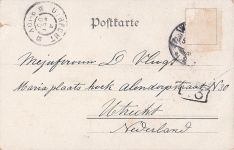 Postkarte
UTRECHT
Mejuferouw D Vlugt
Mariaplaats hoek alendorpstraat N 30
Utrecht
Nederland